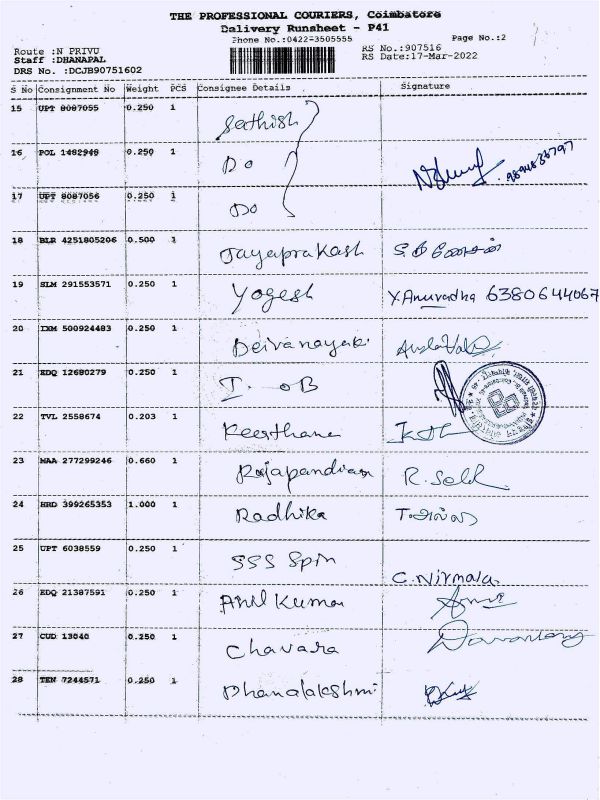 THE PROFESSIONAL COURIERS, Coimbatore
Delivery Runsheet - P41
Phone No.:0422-3505555 Page No.:2
Route :N PRIVU RS No.:907516
Staff :DHANAPAL RS Date:17-Mar-2022
DRS No. :DCJB90751602
S No Consignment No Weight PCS Consignee Details Signature
15 UPT 8087055 0.250 1 Sathish
16 POL 1482948 0.250 1 Do 9894836797
17 UPT 8087056 0.250 1 Do
18 BLR 4251805206 0.500 1 Jayaprakash
19 SLM 291553571 0.250 1 Yogesh Y.Anuradha 6380644067
20 IXM 500924483 0.250 1 Deivanayaki
21 EDQ 12680279 0.250 1 I. OB
22 TVL 2558674 0.203 1 Keerthana
23 MAA 277299246 0.660 1 Rajapandian
24 HRD 399265353 1.000 1 Radhika
25 UPT 6038559 0.250 1 SSS Spin C.Nirmala
26 EDQ 21387591 0.250 1 Anil Kumar
27 CUD 13040 0.250 1 Chavara
28 TEN 7244571 0.250 1 Dhanalakshmi